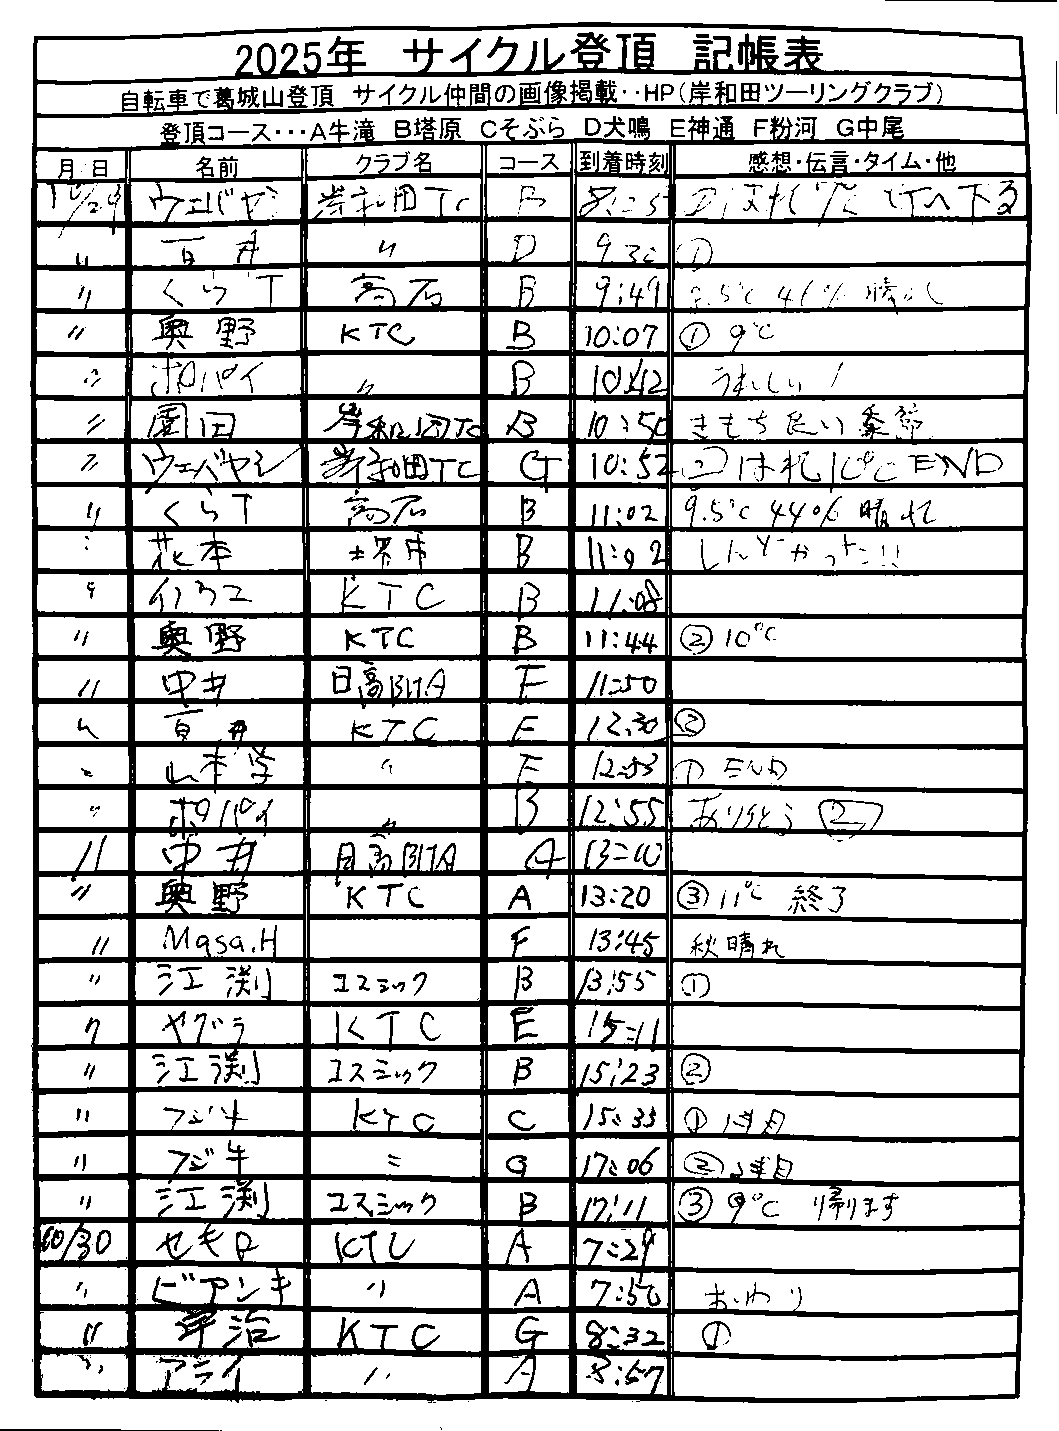 2025年 サイクル登頂 記帳表
自転車で葛城山登頂 サイクル仲間の画像掲載‥HP(岸和田ツーリングクラブ)
登頂コース･･･A牛滝 B塔原 Cそぶら D犬鳴 E神通 F粉河 G中尾
月 日 名前 クラブ名 コース 到着時刻 感想・伝言・タイム・他
10/29 ウエバヤシ 岸和田TC B ① はれ 下る
〃 百井 〃 D 9:30 ①
〃 くらT 高石 B 9:49 9.5℃ 46%
〃 奥野 KTC B 10:07 ① 9℃
〃 ポパイ 〃 B 10:42 うれしい!
〃 園田 岸和田TC B 10:50 きもち良い季節
〃 ウエバヤシ 岸和田TC G 10:52 ② はれ 10℃ END
〃 くらT 高石 B 11:02 9.5℃ 44% 晴れ
〃 花本 堺市 B 11:02 しんどかった!!
〃 KTC B 11:08
〃 奥野 KTC B 11:44 ② 10℃
〃 中井 日高BHA F 11:50
〃 百井 KTC E 12:30 ②
〃 山本学 〃 F 12:53 ① END
〃 ポパイ 〃 B 12:55 ありがとう ②
〃 中井 日高BHA A 13:10
〃 奥野 KTC A 13:20 ③ 11℃ 終了
〃 Masa.H F 13:45 秋晴れ
〃 江渕 コスミック B 13:55 ①
〃 ヤグラ KTC E 15:11
〃 江渕 コスミック B 15:23 ②
〃 フジ牛 KTC C 15:33 ①
〃 フジ牛 〃 G 17:06 ②
〃 江渕 コスミック B 17:11 ③ 9℃ 帰ります
10/30 セキロ KTC A 7:29
〃 ビアンキ 〃 A 7:50 おわり
〃 宇治 KTC G 8:32 ①
〃 アライ 〃 A 8:57